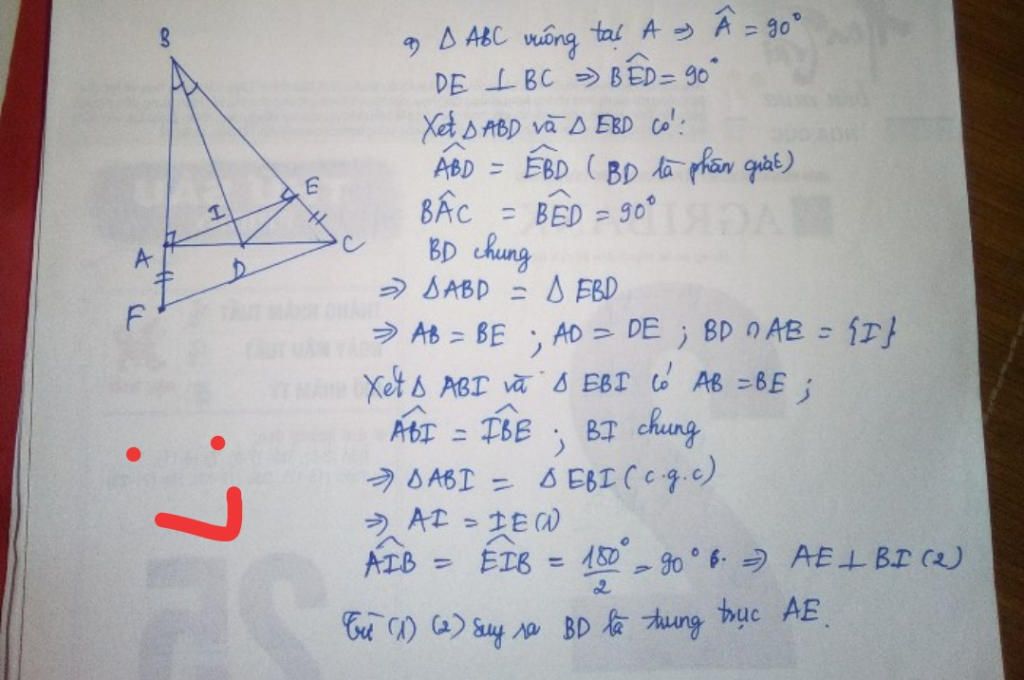 B
I
E
A
D
C
F
a) Δ ABC vuông tại A ⇒ Â = 90°
DE ⊥ BC ⇒ BÊD = 90°
Xét Δ ABD và Δ EBD có:
ABD = EBD ( BD là phân giác)
BÂC = BÊD = 90°
BD chung
⇒ ΔABD = Δ EBD
⇒ AB = BE ; AD = DE ; BD ∩ AE = {I}
Xét Δ ABI và Δ EBI có AB = BE ;
ABI = IBE ; BI chung
⇒ Δ ABI = Δ EBI ( c.g.c)
⇒ AI = IE (1)
AIB = EIB = 180°/2 = 90° ⇒ AE ⊥ BI (2)
Từ (1) (2) suy ra BD là trung trực AE.